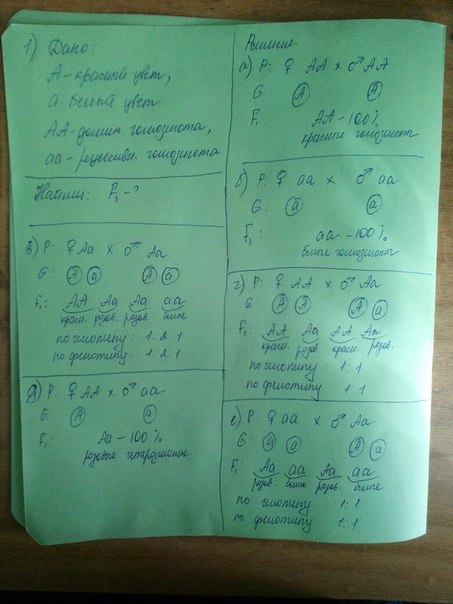 1) Дано:
А - красный цвет,
а - белый цвет
АА - домин. гомозигота,
аа - рецессивн. гомозигота
Найти: F₁ - ?
Решение
а) Р: ♀ АА х ♂ АА
G: А А
F₁ АА - 100%
красные гомозиготы
б) Р: ♀ аа х ♂ аа
G: а а
F₁: аа - 100%
белые гомозиготы
в) Р: ♀ Аа х ♂ Аа
G: А а А а
F₁: АА Аа Аа аа
красн. розов. розов. белые
по генотипу: 1:2:1
по фенотипу: 1:2:1
г) Р: ♀ АА х ♂ Аа
G: А А А а
F₁: АА Аа АА Аа
красн. розов. красн. розов.
по генотипу: 1:1
по фенотипу: 1:1
д) Р: ♀ АА х ♂ аа
G: А а
F₁: Аа - 100%
розовые гетерозиготы
е) Р: ♀ аа х ♂ Аа
G: а а А а
F₁: Аа аа Аа аа
розов. белые розов. белые
по генотипу: 1:1
по фенотипу: 1:1